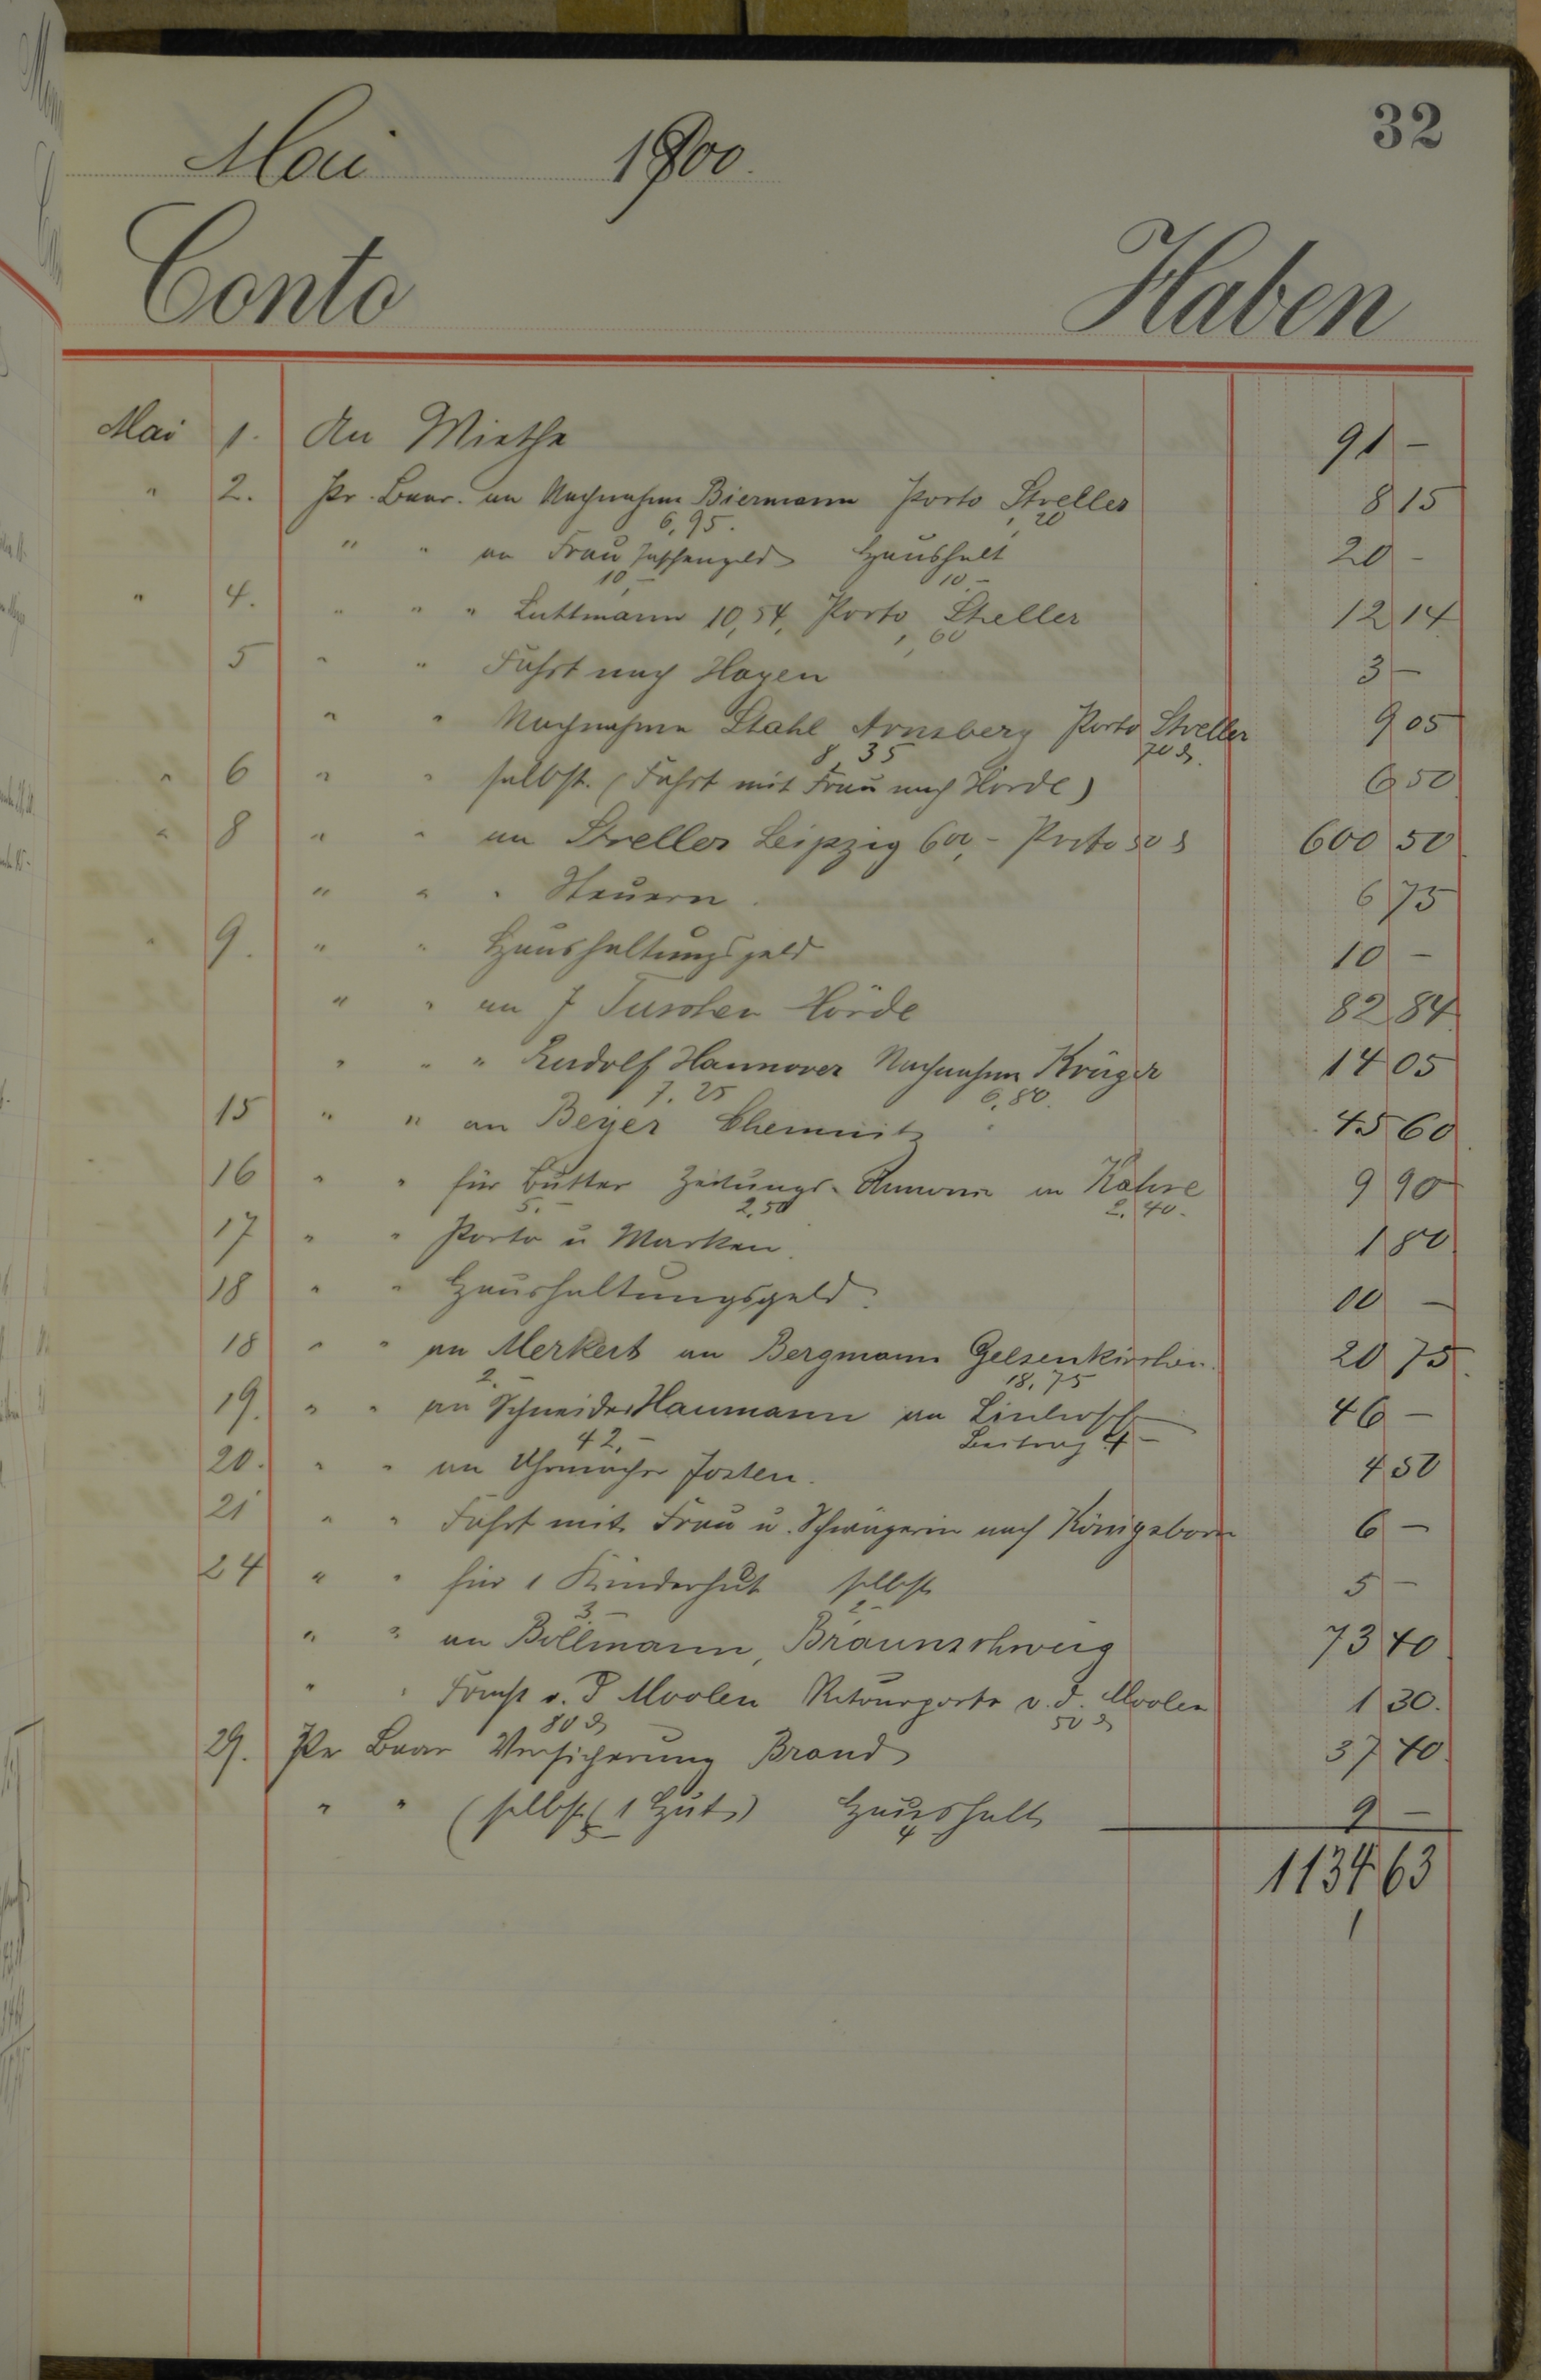 32
Mai 1900.
Conto Haben
Mai 1. An Miethe 91 -
" 2. Pr. Baar. an Nachnahme Biermann Porto Streller 8 15
6,95. 1,20
" " an Frau Taschengeld Haushalt 20 -
10,- 10 -
" 4. " " " Luttmann 10,54, Porto Streller 12 14
1,60
5 " " Fahrt nach Hagen 3 -
" " Nachnahme Stahl Arnsberg Porto Streller 9 05
8,35 70 ₰.
" 6 " " selbst. (Fahrt mit Frau nach Hörde) 6 50
" 8 " " an Streller Leipzig 600,- Porto 50 ₰ 600 50
" " " Steuern. 6 75
" 9. " " Haushaltungsgeld 10 -
" " an J Tusscher Hörde 82 84
" " " Rudolf Hannover Nachnahme Krüger 14 05
7.25 6,80.
15 " " an Beyer Chemnitz 45 60
16 " " für Butter Zeitungs-Annonce in Kohre 9 90
5.- 2,50 2.40.
17 " " Porto u Marken. 1 80
18 " " Haushaltungsgeld. 10 -
18 " " an Merkert an Bergmann Gelsenkirchen. 20 75
2.- 18.75
19. " " an Schneider Haumann an 46 -
42,- Beitrag 4 -
20. " " an Uhrmacher Josten. 4 50
21 " " Fahrt mit Frau u. Schwägerin nach Königsborn 6 -
24 " " für 1 Kinderhut selbst 5 -
3 - 2 -
" " an Bollmann, Braunschweig 73 40
" " v. d Moolen Retourporto v. d. Moolen 1 30.
80 ₰ 50 ₰
29. Pr Baar Versicherung Brand 37 40.
" " (selbst (1 Hut)) Haushalt 9 -
5 - 4
1134 63